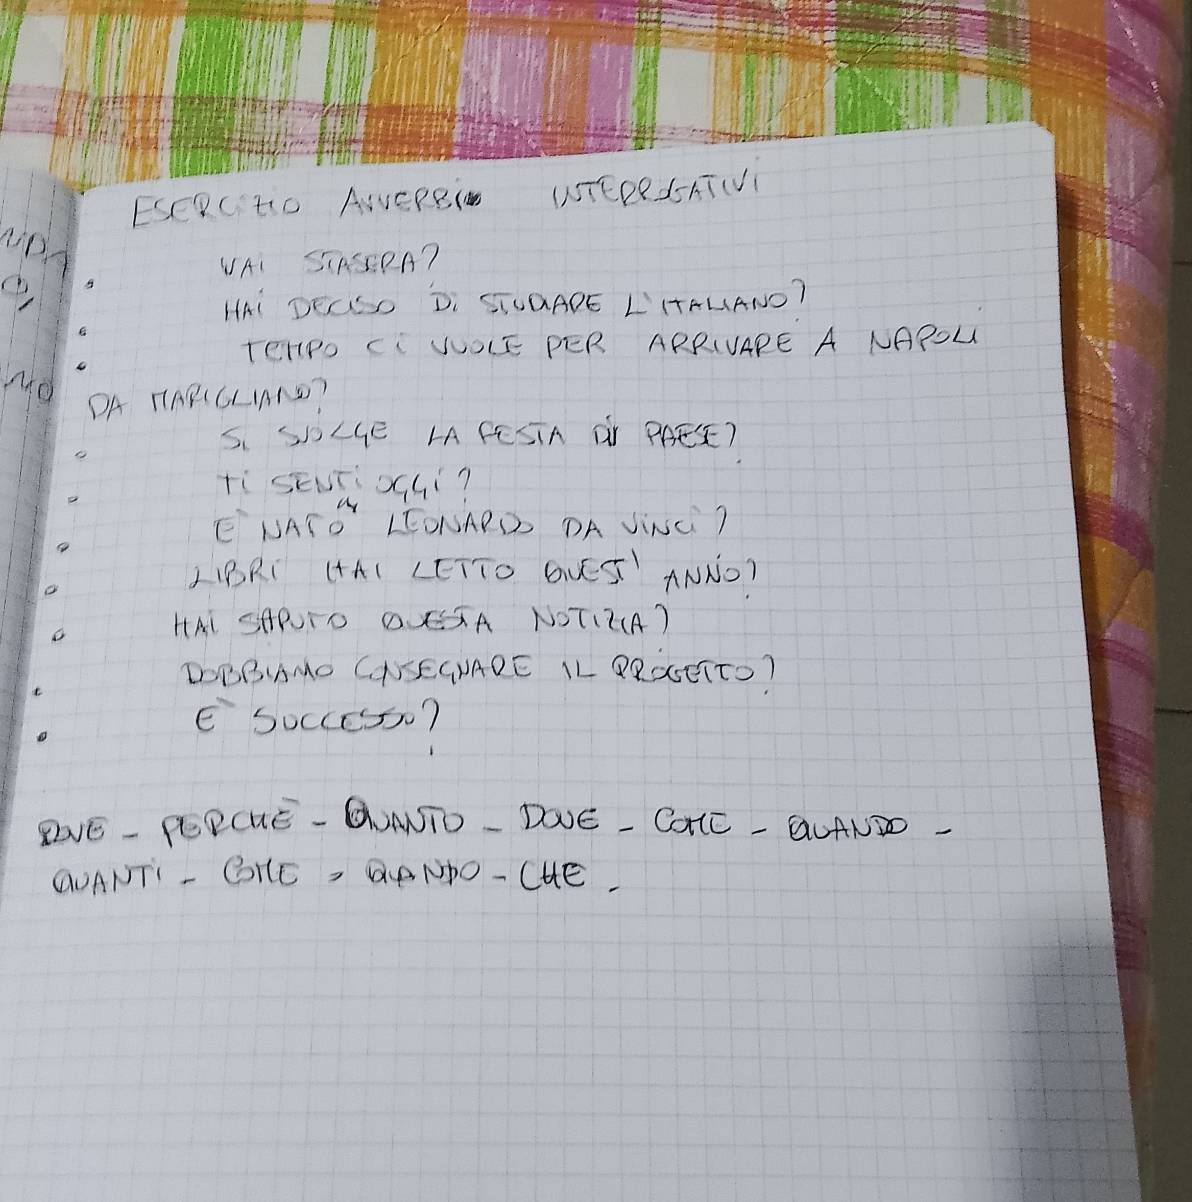 ESERCIZIO AVVERBI INTERROGATIVI
VAI STASERA?
HAI DECISO DI STUDIARE L'ITALIANO?
TEMPO CI VUOLE PER ARRIVARE A NAPOLI
DA MARIGLIANO?
SI SVOLGE LA FESTA DI PAESE?
TI SENTI OGGI?
È NATO LEONARDO DA VINCI?
LIBRI HAI LETTO QUEST'ANNO?
HAI SAPUTO QUESTA NOTIZIA?
DOBBIAMO CONSEGNARE IL PROGETTO?
È SUCCESSO?
DOVE - PERCHÉ - QUANTO - DOVE - COME - QUANDO -
QUANTI - COME - QUANDO - CHE.